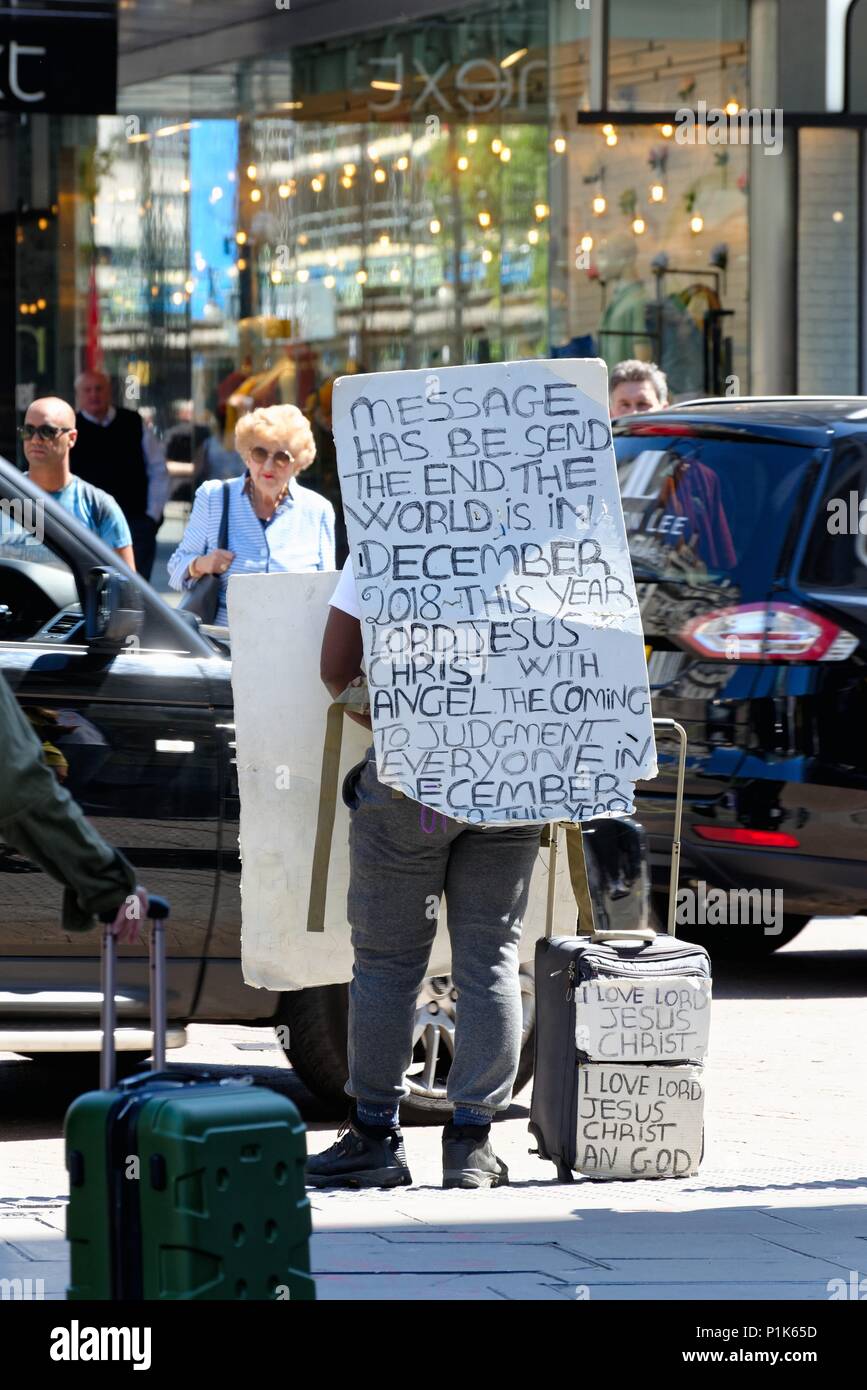 next
MESSAGE
HAS BE SEND
THE END THE
WORLD IS IN
DECEMBER
2018 THIS YEAR
LORD JESUS
CHRIST WITH
ANGEL THE COMING
TO JUDGMENT
EVERYONE IN
DECEMBER
THIS YEAR
LEE
I LOVE LORD
JESUS
CHRIST
I LOVE LORD
JESUS
CHRIST
AN GOD
alamy
Image ID: P1K65D
www.alamy.com